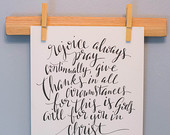 rejoice always
pray
continually, give
thanks in all
circumstances
for this is God's
will for you in
Christ